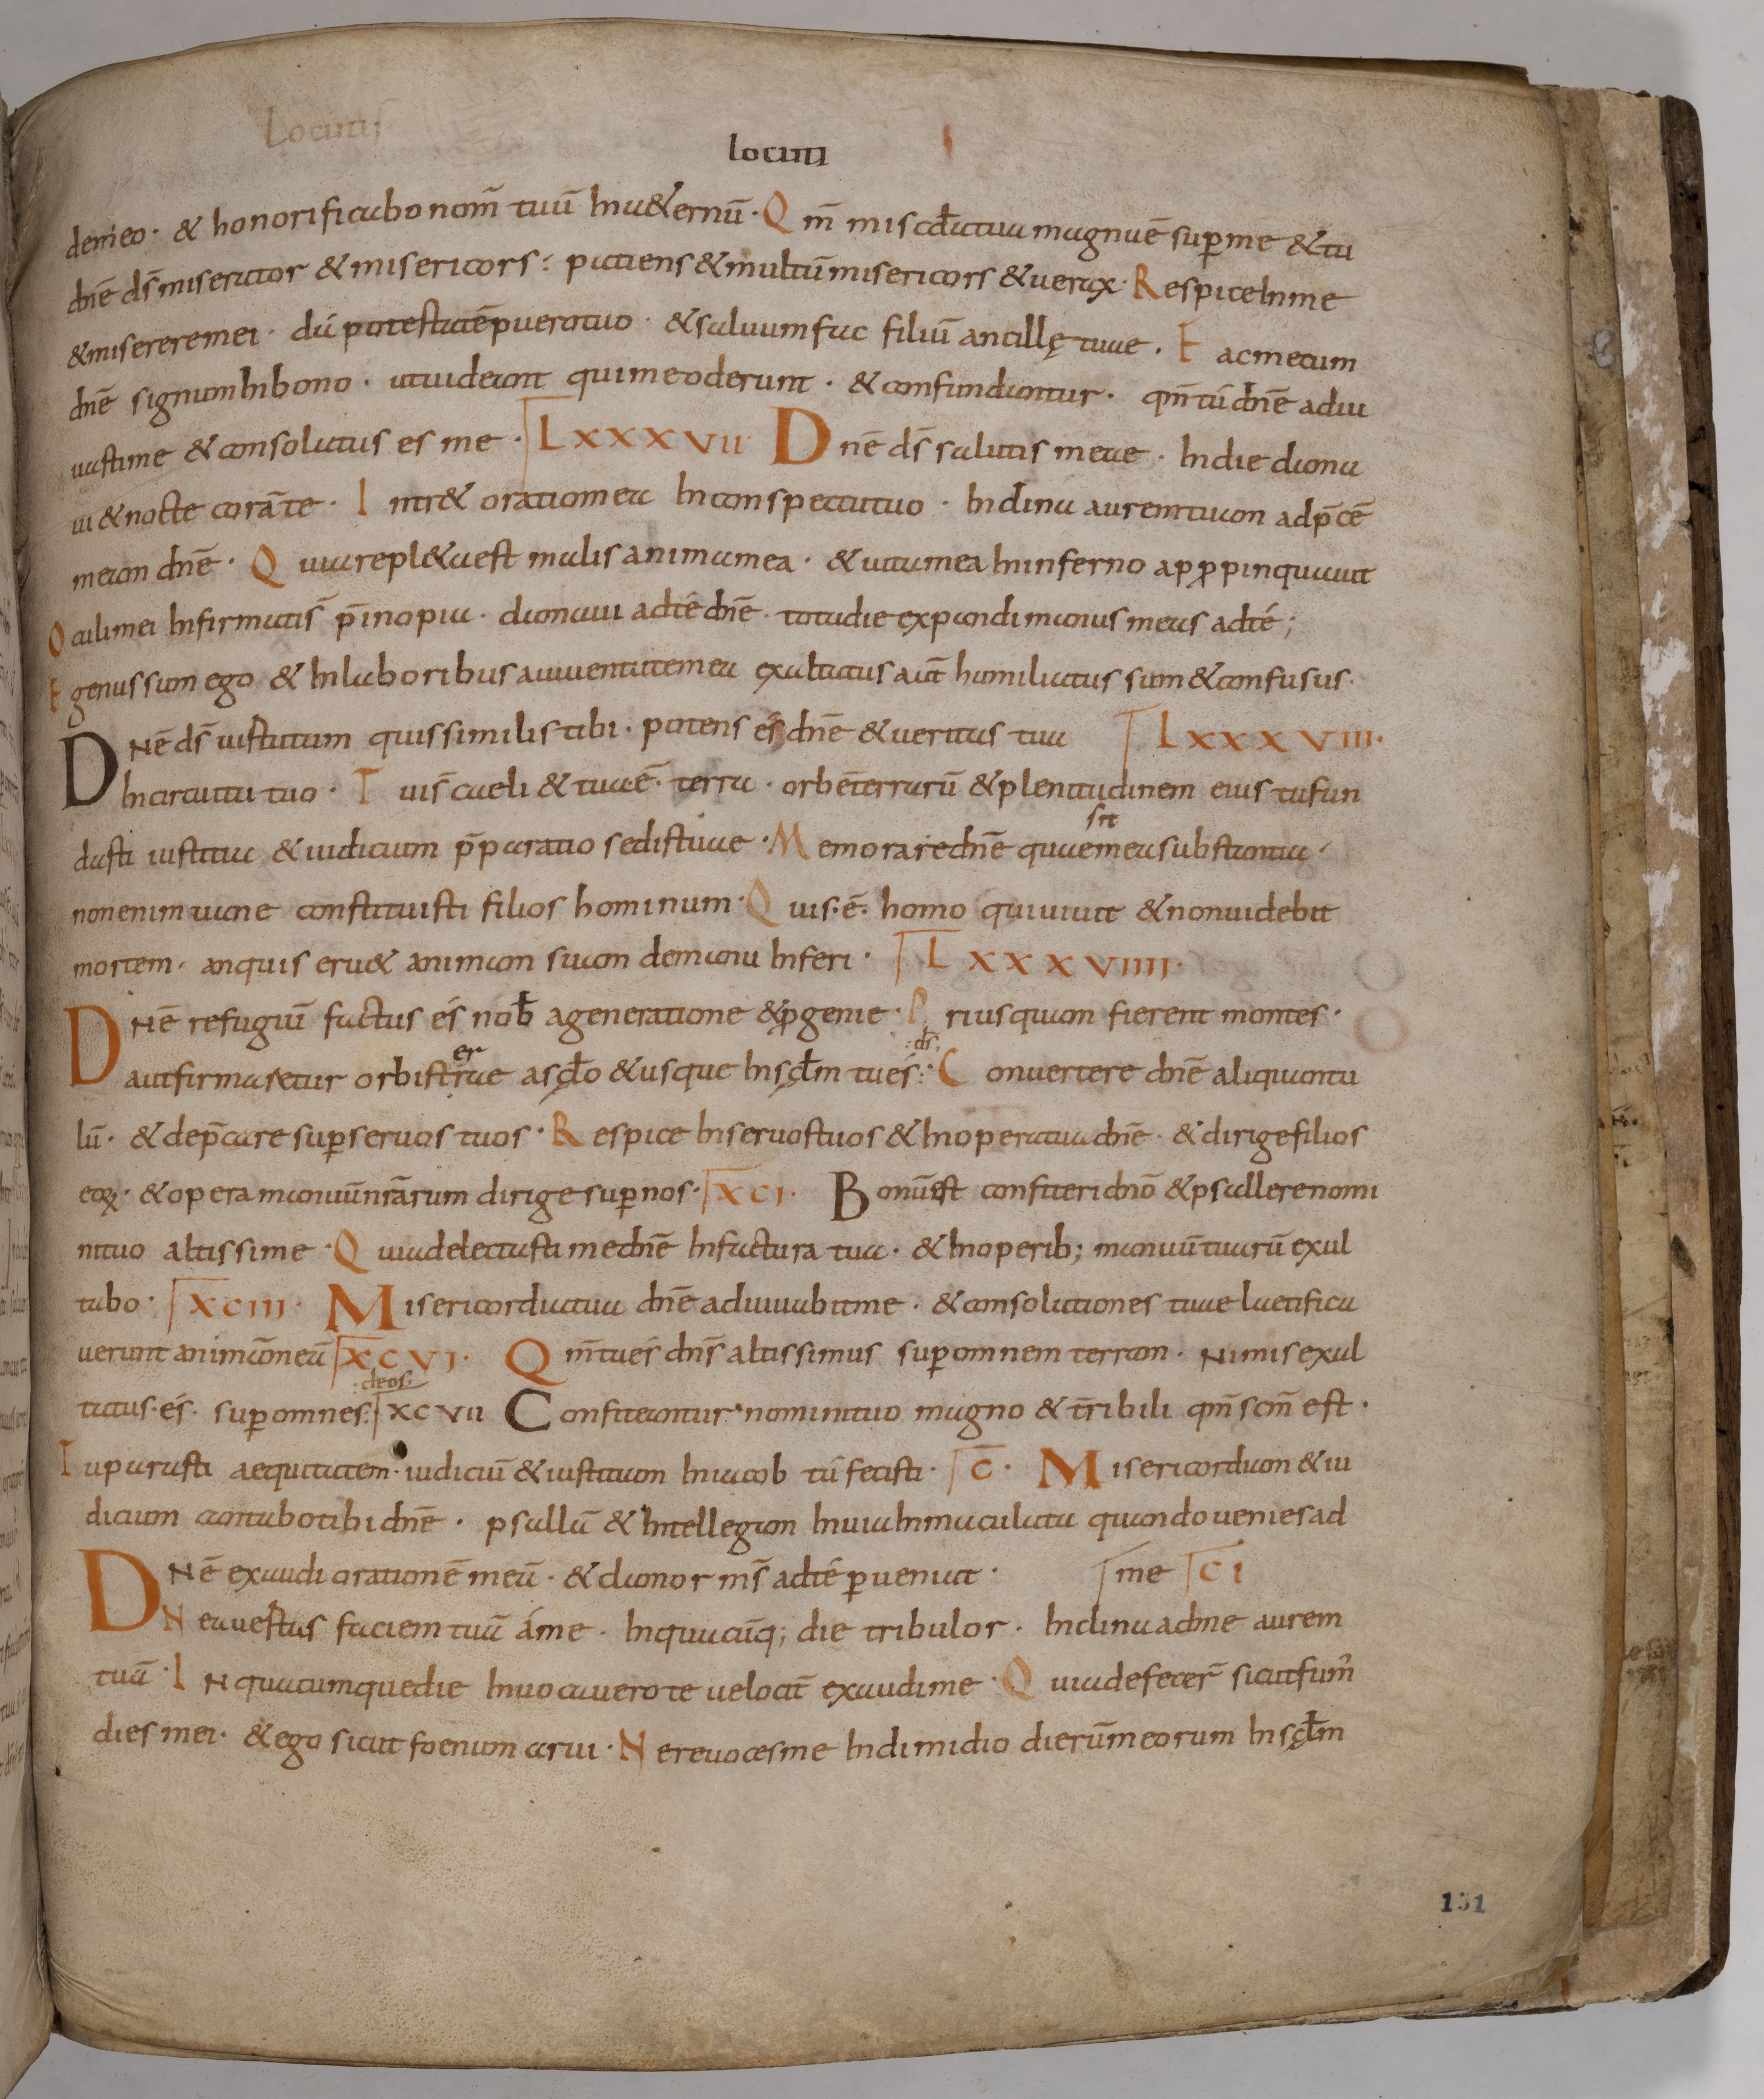 Locutis
locuti
demeo · & honorificabo nom̄ tuū In a&ernū · Q m̄ miscđia tua magna ē sup me & tu
dn̄e ds̄ miserator & misericors : patiens & multū misericors & uerax · Respice In me
& miserere mei · dá potestatē puero tuo · & saluum fac filiū ancillę tuae · Fac mecum
dn̄e signum In bono · ut uideant qui me oderunt · & confundantur · qm̄ tú dn̄e adiu
uasti me & consolatus es me · LXXXVII Dn̄e ds̄ salutis meae · In die clama
ui & nocte corā te · Intr& oratio mea In conspectu tuo · Inclina aurem tuam ad p̄cē
meam dn̄e · Quia repl&a est malis anima mea · & uita mea In inferno appropinquauit
Oculi mei Infirmatis̄ p̄ inopia · clamaui ad té dn̄e · tota die expandi manus meas ad té ;
Egenus sum ego & In laboribus a iuuentute mea exaltatus aut̄ humiliatus sum & confusus ·
DNē ds̄ uirtutum quis similis tibi · potens és dn̄e & ueritas tua LXXXVIII ·
In circuitu tuo · Tui s̄ caeli & tua · ē · terra · orbē terrarū & plenitudinem eius tu fun
sit
dasti iustitia & iudicium p̄paratio sedis tuae · Memorare dn̄e quae mea substantia ·
non enim uane constituisti filios hominum · Quis · ē · homo qui uiuit & non uidebit
mortem · an quis eru& animam suam de manu Inferi · LXXXVIIII ·
DNē refugiū factus és nob̄ a generatione & pgenie · Priusquam fierent montes ·
er
: ds :
aut firmaretur orbis trae a sęclo & usque In sęclm tu és : · Conuertere dn̄e aliquantu
lū · & dep̄care sup seruos tuos · Respice In seruos tuos & In opera tua dn̄e · & dirige filios
eoꝝ · & opera manuū nr̄arum dirige sup nos · XCI · Bonū est confiteri dn̄o & psallere nomi
ni tuo altissime · Quia delectasti me dn̄e In factura tua · & In operib; manuū tuarū exul
tabo · XCIII · Misericordia tua dn̄e adiuuabit me · & consolationes tuae laetifica
uerunt animā meā XCVI · Qm̄ tu és dn̄s altissimus sup omnem terram · Nimis exal
: deos :
tatus · és · sup omnes : XCVII Confiteantur nomini tuo magno & tr̄ribili qm̄ scm̄ est ·
Tu parasti aequitatem · iudiciū & iustitiam In iacob tú fecisti · C · Misericordiam & iu
dicium cantabo tibi dn̄e · psallā & Intellegam In uia Inmaculata quando uenies ad
DNē exaudi orationē meā · & clamor ms̄ ad té pueniat · me CI
Ne auertas faciem tuā á me · In quacūq; die tribulor · Inclina ad me aurem
tuā · IN quacumque die Inuocauero te uelocit̄ exaudi me · Quia defecer̄ sicut fum̄
dies mei · & ego sicut foenum arui · Ne reuoces me In dimidio dierū meorum In sęclm
131